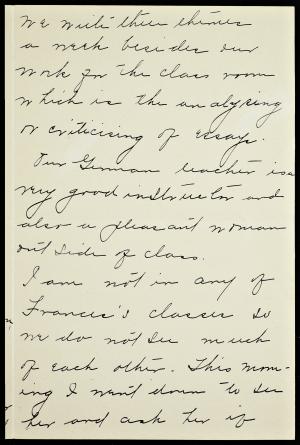 We write three themes
a week besides our
work for the class room
which is the analysing
or criticising of essays.
Our German teacher is a
very good instructor and
also a pleasant woman
out side of class.
I am not in any of
Frances's classes so
we do not see much
of each other. This morn-
ing I went down to see
her and ask her if